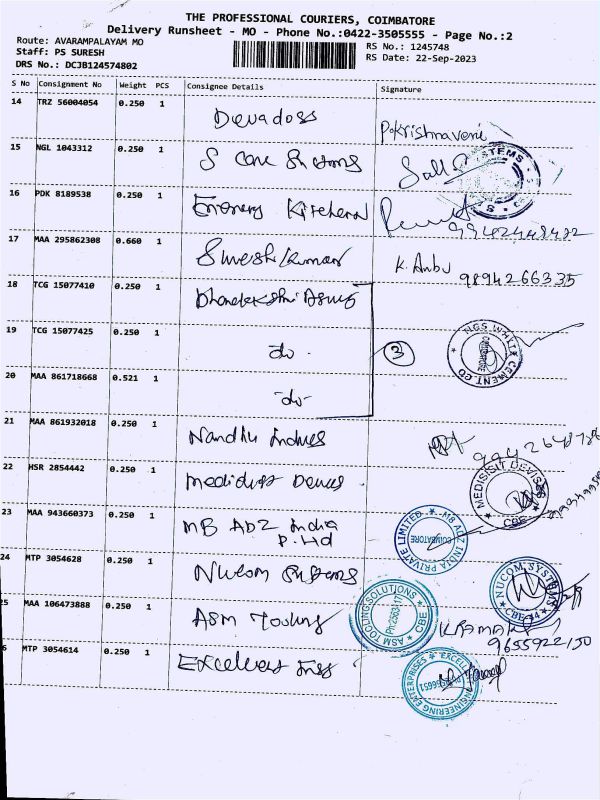 THE PROFESSIONAL COURIERS, COIMBATORE
Delivery Runsheet - MO - Phone No.:0422-3505555 - Page No.:2
Route: AVARAMPALAYAM MO
RS No.: 1245748
Staff: PS SURESH
RS Date: 22-Sep-2023
DRS No.: DCJB124574802
S No Consignment No Weight PCS Consignee Details Signature
14 TRZ 56004054 0.250 1 Devadoss P.Krishnaveni
15 NGL 1043312 0.250 1 S Care Systems
16 PDK 8189538 0.250 1 Kitchen
17 MAA 295862308 0.660 1 Sureshkumar K. Anbu 9894266335
18 TCG 15077410 0.250 1
19 TCG 15077425 0.250 1 -do- 3
NGS WHITE CEMENT.CO COIMBATORE
20 MAA 861718668 0.521 1 -do-
21 MAA 861932018 0.250 1 Nandhu
22 HSR 2854442 0.250 1
MEDISIST DEVISA CBE
23 MAA 943660373 0.250 1 MB ADZ India P.Ltd
MB ADZ INDIA PRIVATE LIMITED COIMBATORE
24 MTP 3054628 0.250 1 Nucom Systems
NUCOM SYSTEMS CBE-44
25 MAA 106473888 0.250 1 ASM Tooling
ASM TOOLING SOLUTIONS CBE
9655922150
6 MTP 3054614 0.250 1
ENGINEERING ENTERPRISES